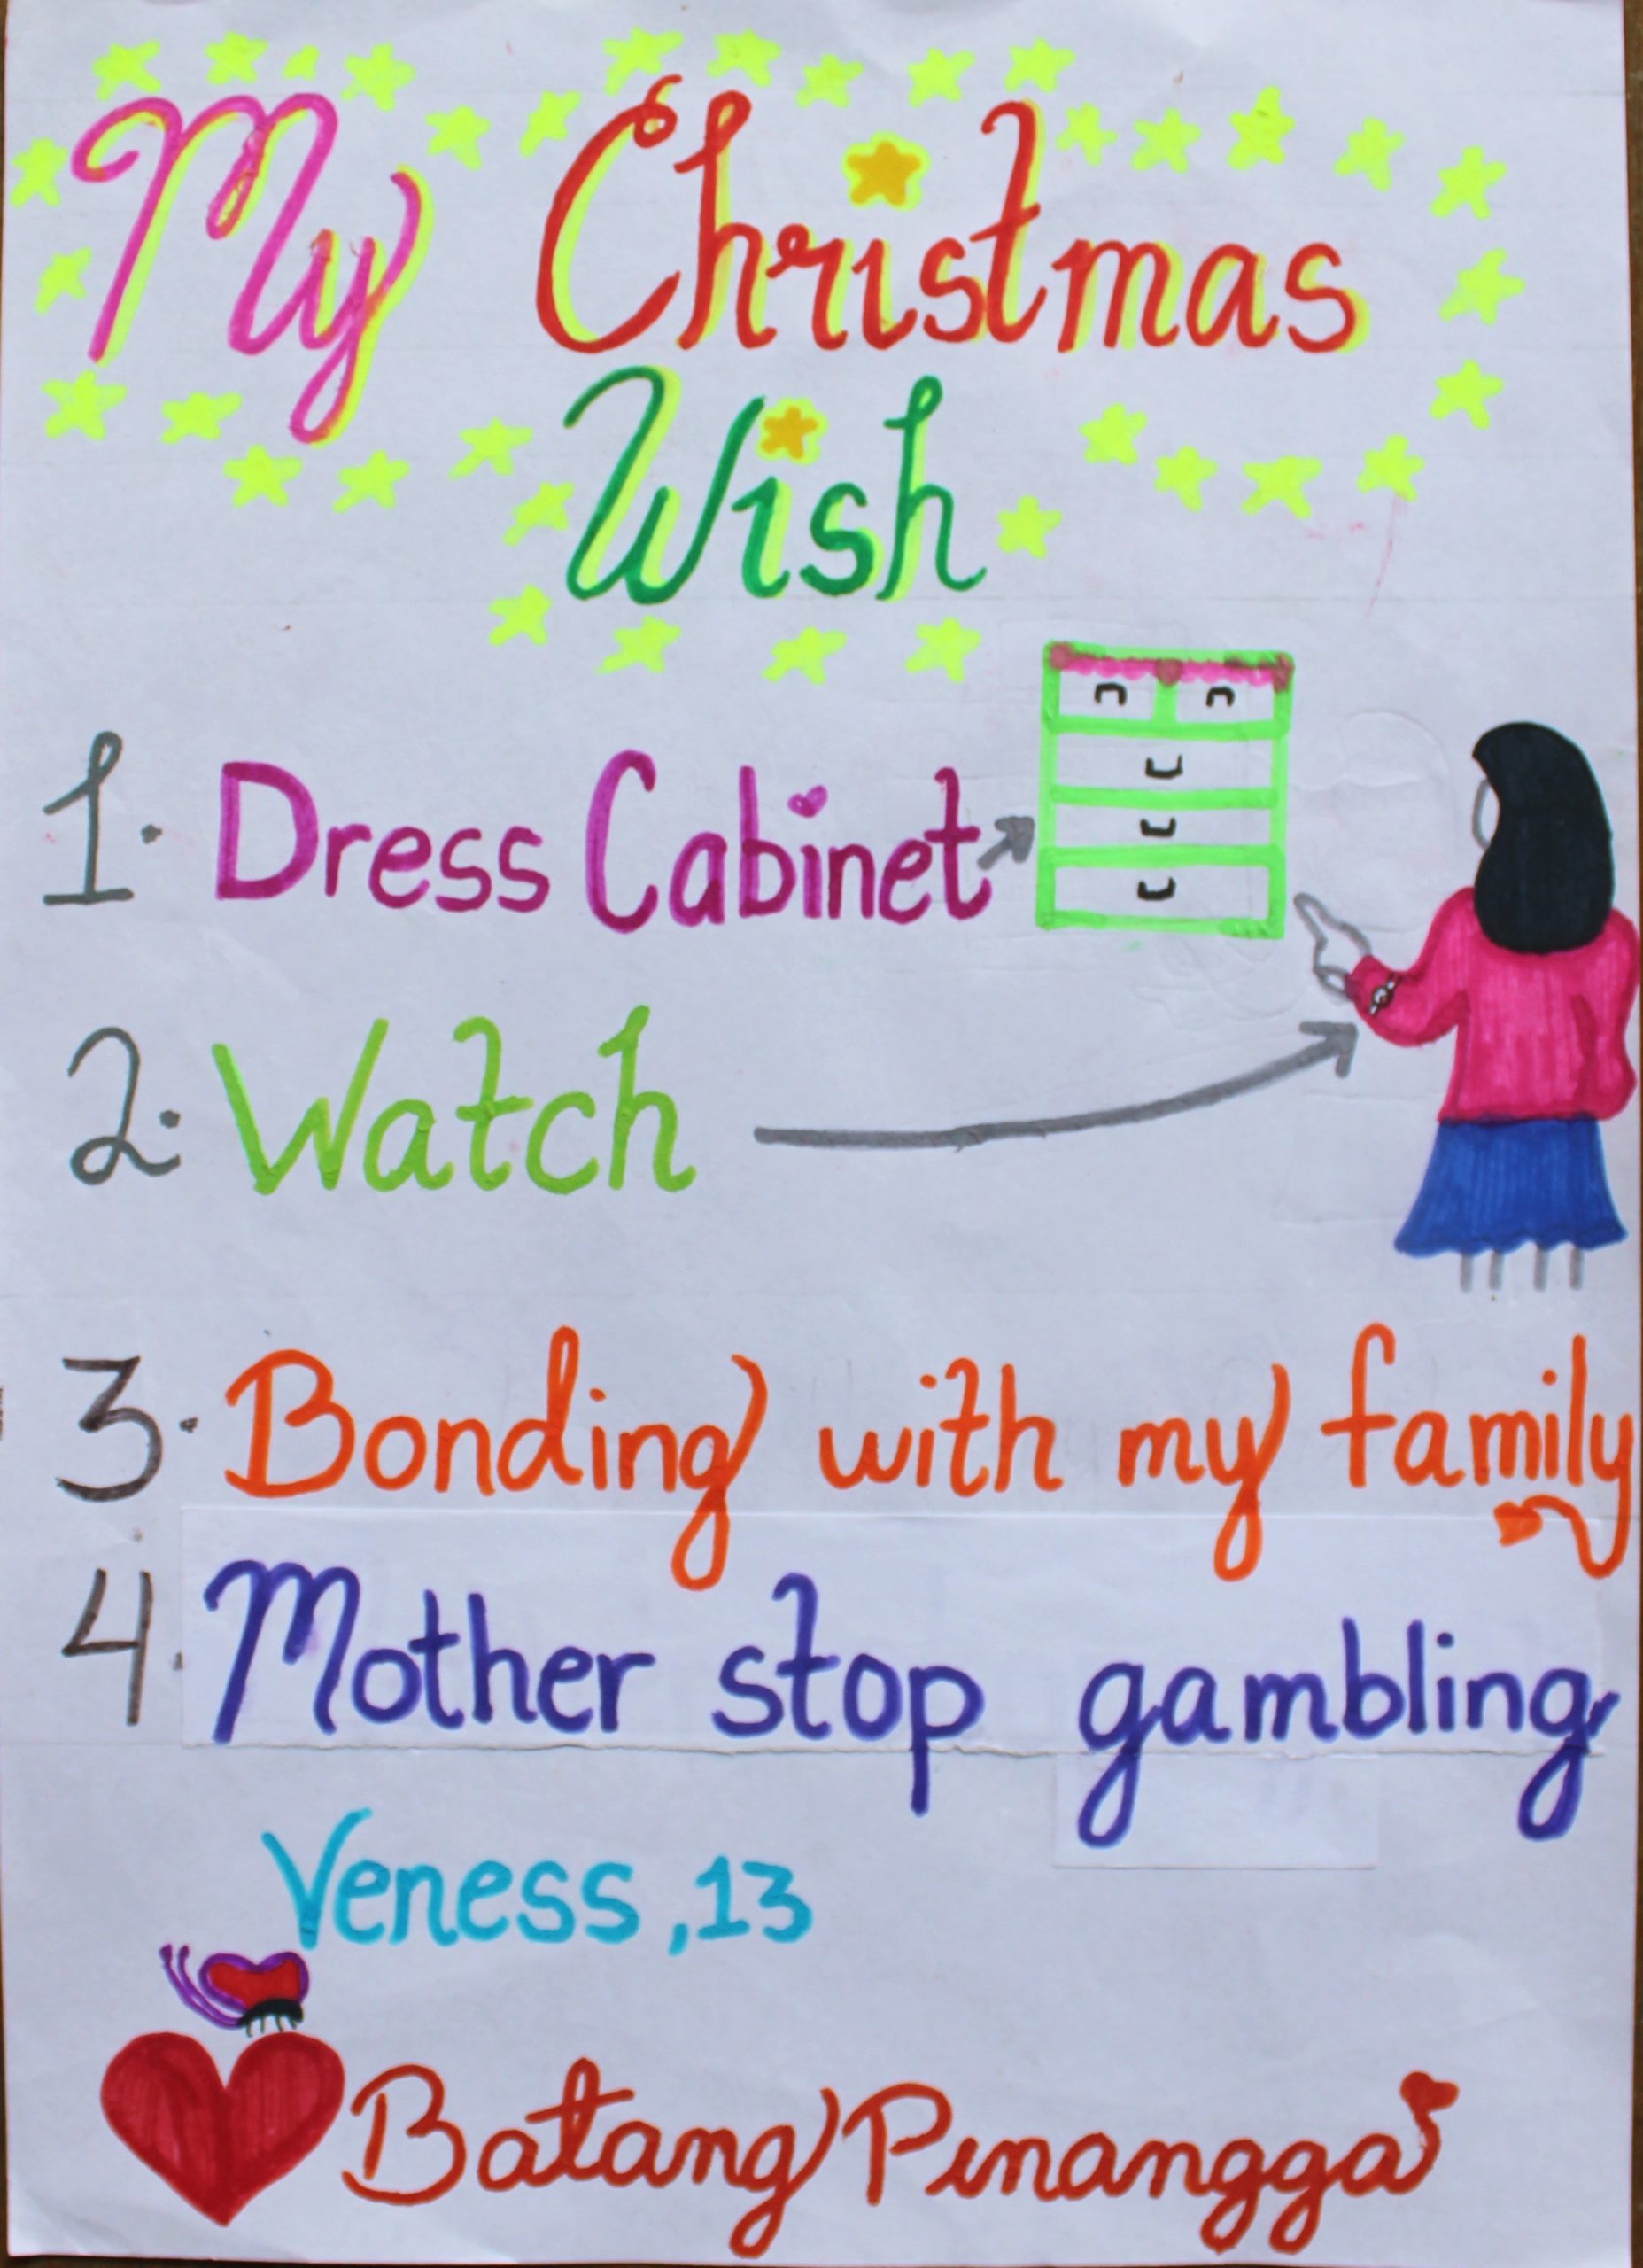 My Christmas
Wish
1. Dress Cabinet
2. Watch
3. Bonding with my family
4. Mother stop gambling
Veness, 13
Batang Pinangga